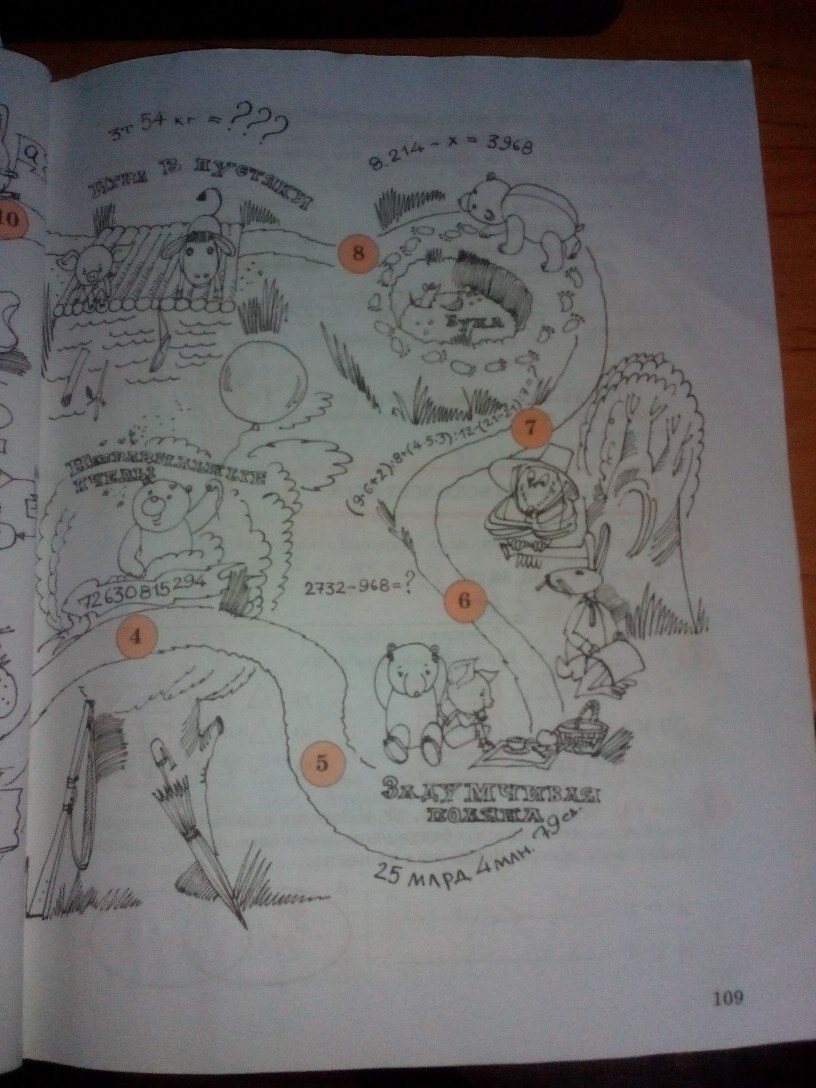 3т 54 кг = ???
8.214 - x = 3968
ИГРА В ПУСТЯКИ
10
8
БУКА
7
(9·6+2):8+(4·5·3):12-(21-21):7=?
НЕПРАВИЛЬНЫЕ
ПЧЕЛЫ
72630815294
2732-968=?
6
4
5
ЗАДУМЧИВАЯ
ПОЛЯНА
25 МЛРД 4 МЛН. 79 ед.
109